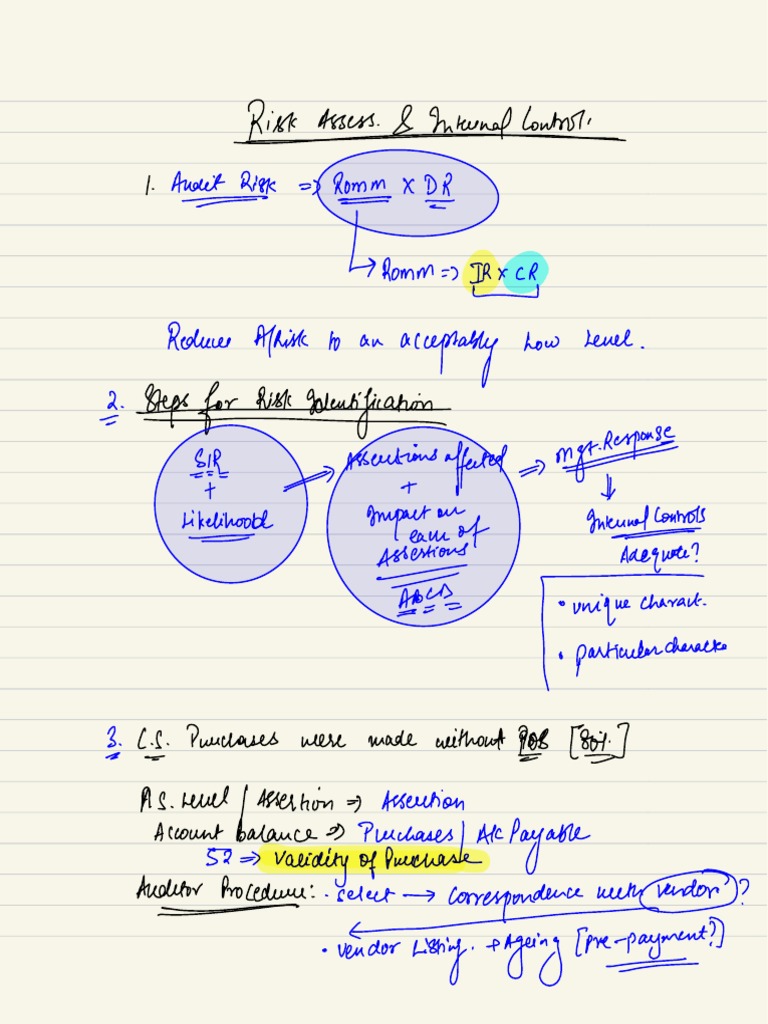 Risk Assess. & Internal Control.
1. Audit Risk => Romm x DR
Romm => IR x CR
Reduces A/Risk to an acceptably low level.
2. Steps for Risk Identification
SIR
+
Likelihood
Assertions affected
+
Impact on
each of
Assertions
ABCD
=> Mgt. Response
Internal Controls
Adequate?
• unique charact.
• particular characte
3. C.S. Purchases were made without POs [80%]
F.S. Level / Assertion => Assertion
Account balance => Purchases / A/c Payable
=> Validity of Purchase
Auditor Procedure: • select → correspondence with vendor?
• vendor Listing. + Ageing [Pre-payment?]